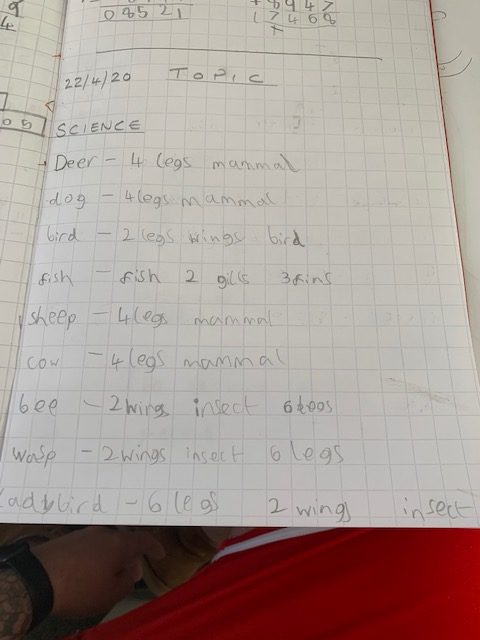 9
4
08521
+8947
17468
+
22/4/20 TOPIC
05
SCIENCE
Deer - 4 legs mammal
dog - 4legs mammal
bird - 2 legs wings bird
fish - fish 2 gills 3fins
sheep - 4legs mammal
cow - 4 legs mammal
bee - 2wings insect 6
wasp - 2wings insect 6 legs
Ladybird - 6 legs 2 wings insect